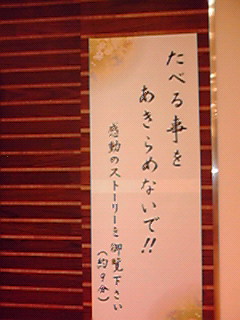 たべる事を
あきらめないで!!
感動のストーリーを御覧下さい
(約9分)